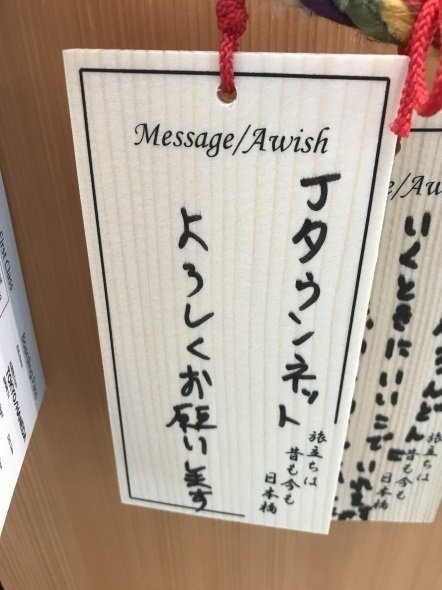 Message/Awish
Jタウンネット
よろしくお願い致します
旅立ちは
昔も今も
日本橋
e/Aw
いくときにいい
First Class
Boarding Pass
TOKYO/HANEDA
旅立ちは
昔も今も
日本橋